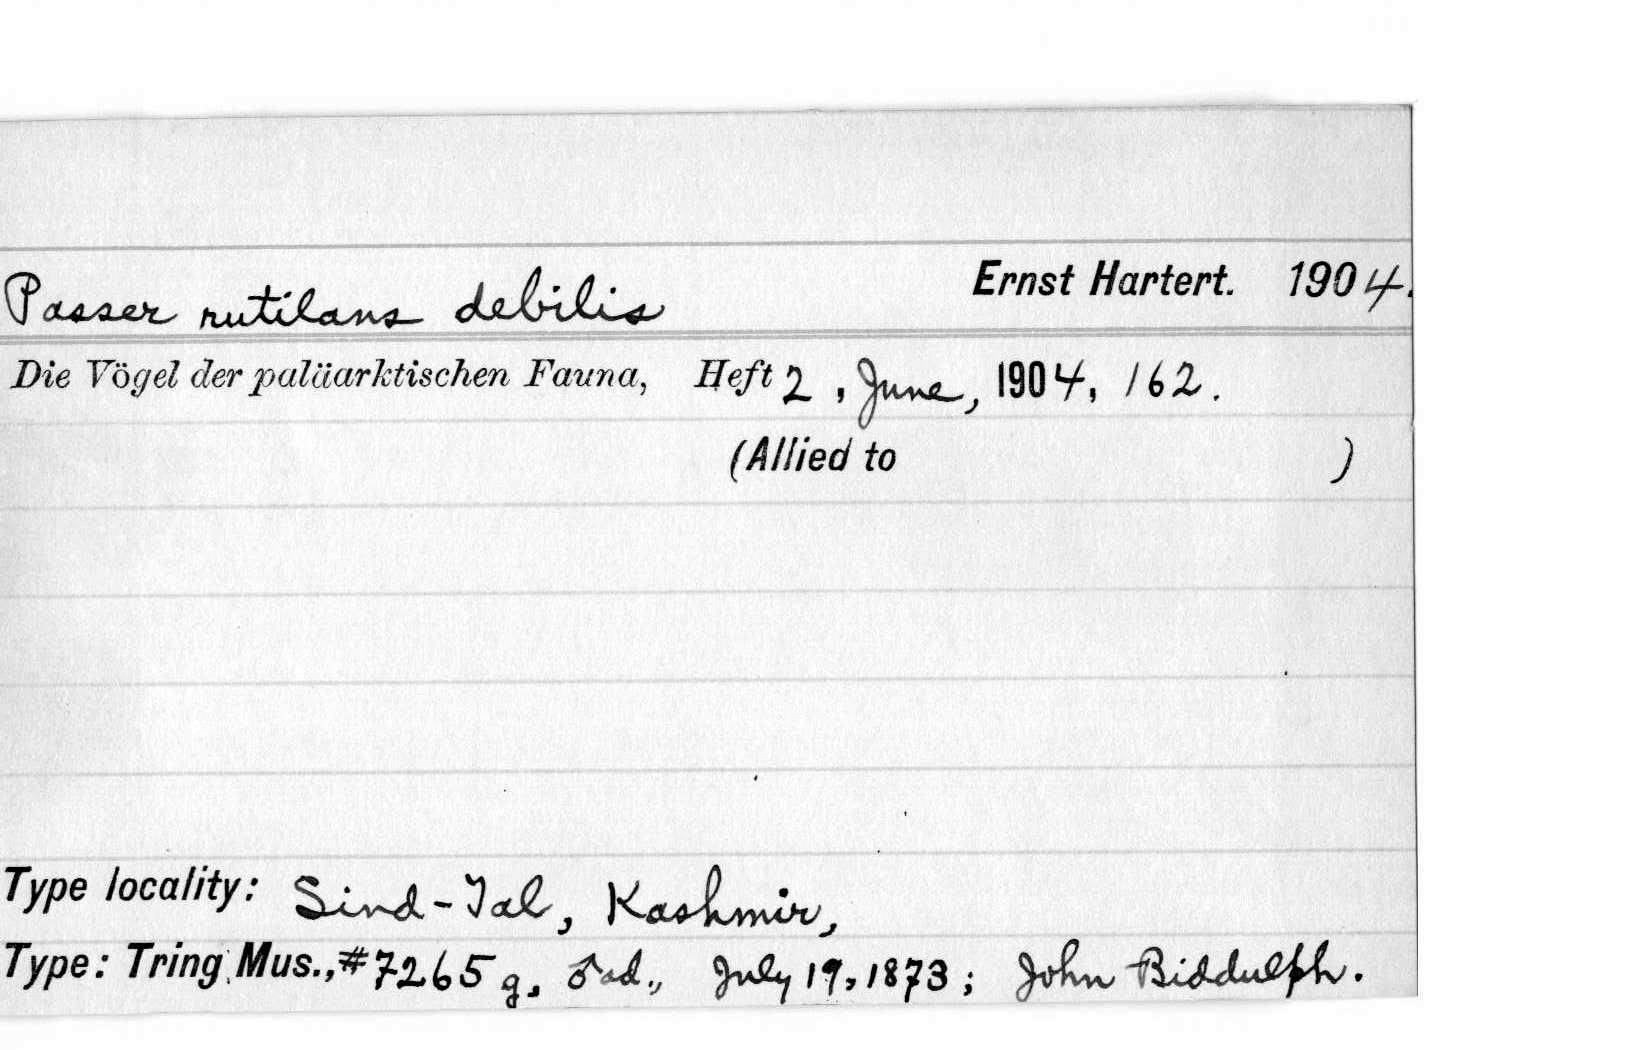 Passer rutilans debilis Ernst Hartert. 1904.
Die Vögel der paläarktischen Fauna, Heft 2, June, 1904, 162.
(Allied to )
Type locality: Sind-Tal, Kashmir,
Type: Tring Mus., #7265 g, ♂ ad., July 19, 1873; John Biddulph.